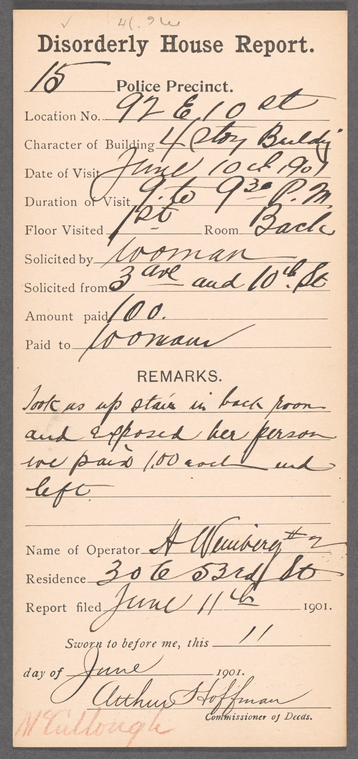 Disorderly House Report.
15 Police Precinct.
Location No. 92 E. 10 st
Character of Building 4 stoy Buildg
Date of Visit June 10th 1901
Duration of Visit 9. to 9 30 P.M
Floor Visited 1st Room Back
Solicited by woman
Solicited from 3 ave and 10th. St
Amount paid 1.00.
Paid to woman
REMARKS.
Took us up stair in back room
and exposed her person
we paid 1.00 each and
left.
Name of Operator H Weinberg #2
Residence 306 53rd St
Report filed June 11th 1901.
Sworn to before me, this 11
day of June 1901.
Arthur Hoffman
Commissioner of Deeds.
McCullough